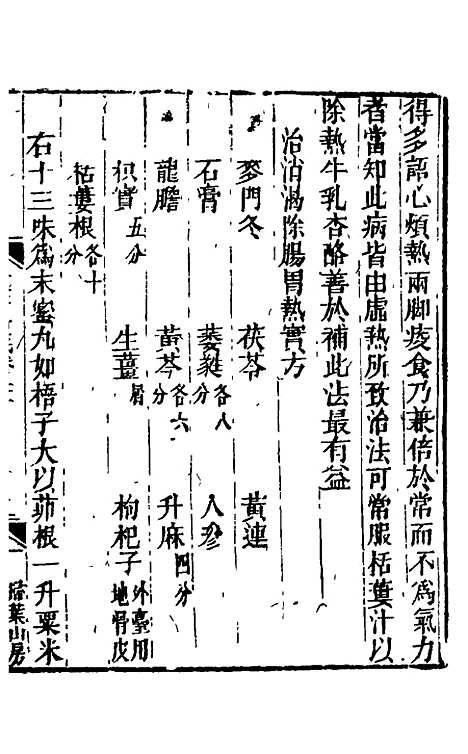 得多語心煩熱兩脚痠食乃兼倍於常而不爲氣力
者當知此病皆由虛熱所致治法可常服栝蔞汁以
除熱牛乳杏酪善於補此法最有益
治消渴除腸胃熱實方
麥門冬 茯苓 黃連
石膏 萎蕤各八分 人參
龍膽 黃芩各六分 升麻四分
枳實五分 生薑屑 枸杞子外臺用地骨皮
栝蔞根各十分
右十三味爲末蜜丸如梧子大以茆根一升粟米
掃葉山房